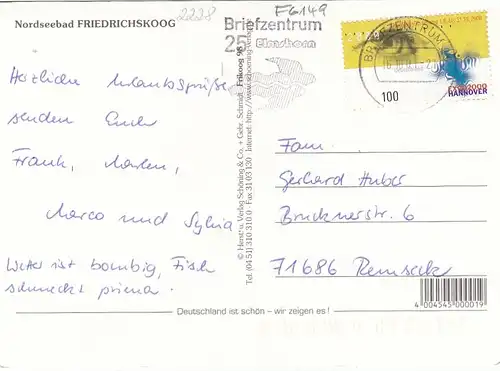 Nordseebad FRIEDRICHSKOOG
2228
F6149
Briefzentrum
25 Elmshorn
BRIEFZENTRUM
100
EXPO2000
HANNOVER
Herzliche Urlaubsgrüße
senden Euch
Frank, Maren,
Marco und Sylvia
Wetter ist bombig, Fisch
schmeckt prima.
© Herst. u. Verlag Schöning & Co. + Gebr. Schmidt · Frikoog 98
Tel. (04 51) 310 310 0 Fax 31 03 130 Internet: http://www.schoening-verlag
Fam.
Gerhard Huber
Brucknerstr. 6
71686 Remseck
4 004545 000019
Deutschland ist schön – wir zeigen es !